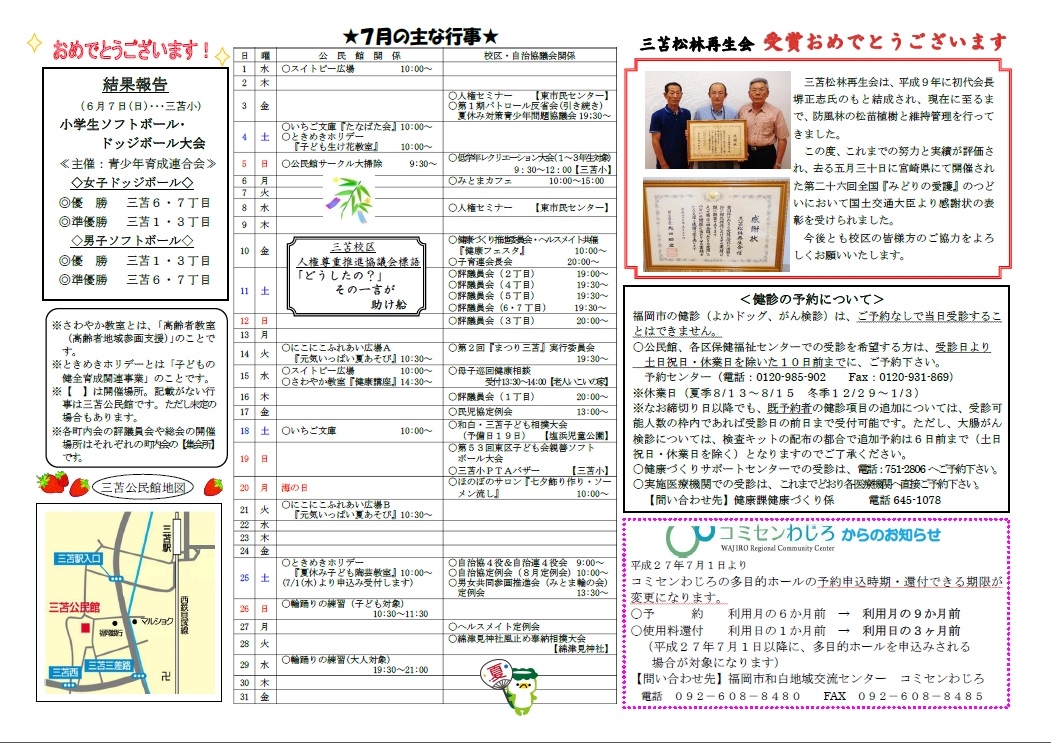 おめでとうございます!
結果報告
(6月7日(日)・・・三苫小)
小学生ソフトボール・
ドッジボール大会
≪主催:青少年育成連合会≫
◇女子ドッジボール◇
◎優 勝 三苫6・7丁目
◎準優勝 三苫1・3丁目
◇男子ソフトボール◇
◎優 勝 三苫1・3丁目
◎準優勝 三苫6・7丁目
※さわやか教室とは、「高齢者教室
(高齢者地域参画支援)」のことで
す。
※ときめきホリデーとは「子どもの
健全育成関連事業」のことです。
※【 】は開催場所。記載がない行
事は三苫公民館です。ただし未定の
場合もあります。
※各町内会の評議員会や総会の開催
場所はそれぞれの町内会の【集会所】
です。
三苫公民館地図
三苫駅
三苫駅入口
西鉄貝塚線
三苫公民館
マルショク
福岡銀行
三苫西
三苫三差路
★7月の主な行事★
日 曜 公 民 館 関 係 校区・自治協議会関係
1 水 ○スイトピー広場 10:00~
2 木
3 金 ○人権セミナー 【東市民センター】
○第1期パトロール反省会(引き続き)
夏休み対策青少年問題協議会 19:30~
4 土 ○いちご文庫『たなばた会』10:00~
○ときめきホリデー
『子ども生け花教室』 10:00~
5 日 ○公民館サークル大掃除 9:30~ ○低学年レクリエーション大会(1~3年生対象)
9:30~12:00【三苫小】
6 月 ○みとまカフェ 10:00~15:00
7 火
8 水 ○人権セミナー 【東市民センター】
9 木
10 金 ○健康づくり推進委員会・ヘルスメイト共催
『健康フェスタ』 10:00~
○子育連会長会 20:00~
三苫校区
人権尊重推進協議会標語
「どうしたの?」
その一言が
助け船
11 土 ○評議員会(2丁目) 19:00~
○評議員会(4丁目) 19:30~
○評議員会(5丁目) 19:30~
○評議員会(6・7丁目) 19:30~
12 日 ○評議員会(3丁目) 20:00~
13 月
14 火 ○にこにこふれあい広場A
『元気いっぱい夏あそび』10:30~ ○第2回『まつり三苫』実行委員会
19:30~
15 水 ○スイトピー広場 10:00~
○さわやか教室『健康講座』14:30~ ○母子巡回健康相談
受付13:30~14:00【老人いこいの家】
16 木 ○評議員会(1丁目) 20:00~
17 金 ○民児協定例会 13:00~
18 土 ○いちご文庫 10:00~ ○和白・三苫子ども相撲大会
(予備日19日) 【塩浜児童公園】
19 日 ○第53回東区子ども会親善ソフト
ボール大会
○三苫小PTAバザー 【三苫小】
20 月 海の日 ○ほのぼのサロン『七夕飾り作り・ソー
メン流し』 10:00~
21 火 ○にこにこふれあい広場B
『元気いっぱい夏あそび』10:30~
22 水
23 木
24 金
25 土 ○ときめきホリデー
『夏休み子ども陶芸教室』10:00~
(7/1(水)より申込み受付します) ○自治協4役会&自治連4役会 9:00~
○自治協定例会(8月定例会)10:00~
○男女共同参画推進会(みとま輪の会)
定例会 13:30~
26 日 ○輪踊りの練習(子ども対象)
10:30~11:30
27 月 ○ヘルスメイト定例会
28 火 ○綿津見神社風止め奉納相撲大会
【綿津見神社】
29 水 ○輪踊りの練習(大人対象)
19:30~21:00
30 木
31 金
夏
三苫松林再生会 受賞おめでとうございます
三苫松林再生会は、平成9年に初代会長
堺正志氏のもと結成され、現在に至るま
で、防風林の松苗植樹と維持管理を行って
きました。
この度、これまでの努力と実績が評価さ
れ、去る五月三十日に宮崎県にて開催され
た第二十六回全国『みどりの愛護』のつど
いにおいて国土交通大臣より感謝状の表
彰を受けられました。
今後とも校区の皆様方のご協力をよろ
しくお願いいたします。
感謝状
<健診の予約について>
福岡市の健診(よかドッグ、がん検診)は、ご予約なしで当日受診するこ
とはできません。
○公民館、各区保健福祉センターでの受診を希望する方は、受診日より
土日祝日・休業日を除いた10日前までに、ご予約下さい。
予約センター(電話:0120-985-902 Fax:0120-931-869)
※休業日(夏季8/13~8/15 冬季12/29~1/3)
※なお締切り日以降でも、既予約者の健診項目の追加については、受診可
能人数の枠内であれば受診日の前日まで受付可能です。ただし、大腸がん
検診については、検査キットの配布の都合で追加予約は6日前まで(土日
祝日・休業日を除く)となりますのでご了承ください。
○健康づくりサポートセンターでの受診は、電話:751-2806へご予約下さい。
○実施医療機関での受診は、これまでどおり各医療機関へ直接ご予約下さい。
【問い合わせ先】健康課健康づくり係 電話 645-1078
コミセンわじろ からのお知らせ
WAJIRO Regional Community Center
平成27年7月1日より
コミセンわじろの多目的ホールの予約申込時期・還付できる期限が
変更になります。
○予 約 利用月の6か月前 → 利用月の9か月前
○使用料還付 利用日の1か月前 → 利用日の3ヶ月前
(平成27年7月1日以降に、多目的ホールを申込みされる
場合が対象になります)
【問い合わせ先】福岡市和白地域交流センター コミセンわじろ
電話 092-608-8480 FAX 092-608-8485